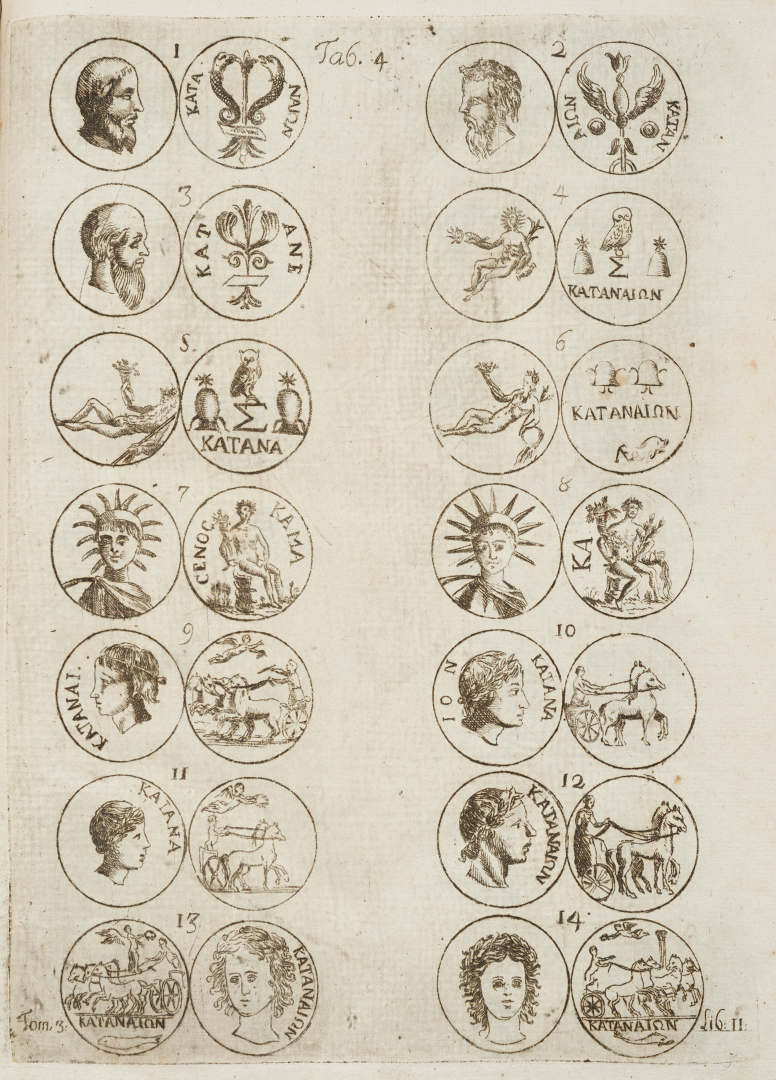 Tab. 4
1
ΚΑΤΑ ΝΑΙΩΝ
2
ΑΙΩΝ ΚΑΤΑΝ
3
ΚΑΤ ΑΝΕ
4
ΚΑΤΑΝΑΙΩΝ
5.
ΚΑΤΑΝΑ
6
ΚΑΤΑΝΑΙΩΝ
7
CΕΝΟC ΚΑΜΑ
8
ΚΑ
9
ΚΑΤΑΝΑΙ.
10
ΙΟΝ ΚΑΤΑΝΑ
11
ΚΑΤΑΝΑ
12
ΚΑΤΑΝΑΙΩΝ
13
ΚΑΤΑΝΑΙΩΝ
ΚΑΤΑΝΑΙΩΝ
14
ΚΑΤΑΝΑΙΩΝ
Tom. 3. Lib: II: